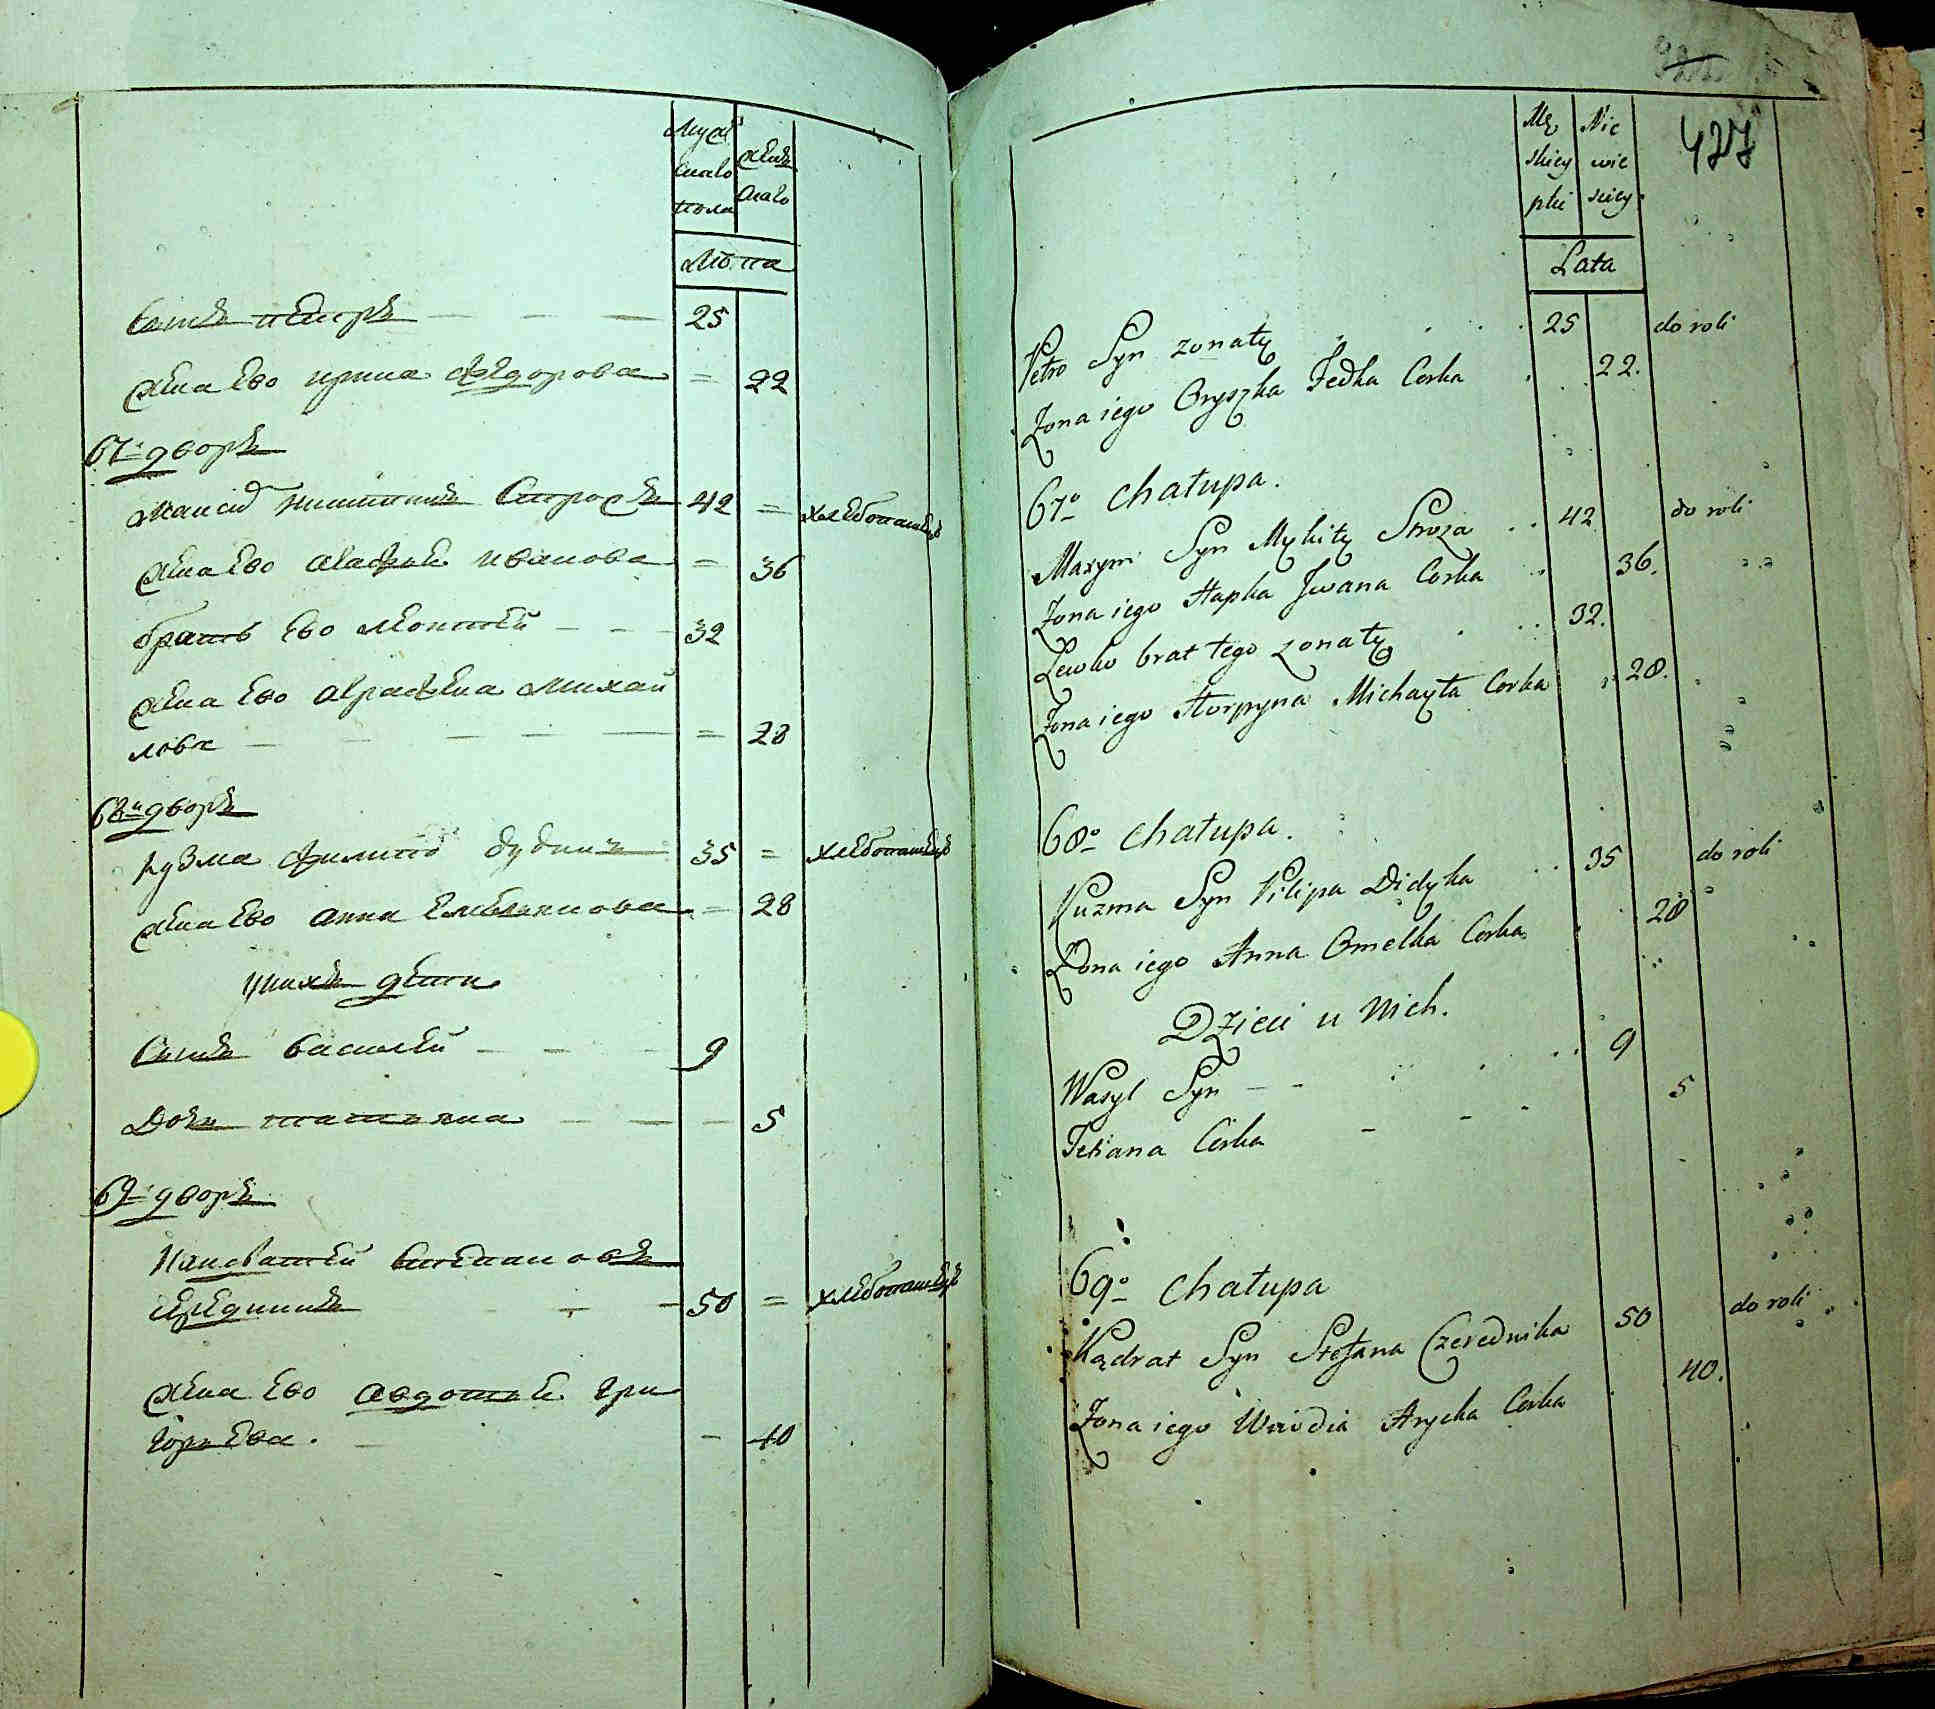 Мужскаго пола
женскаго
Лѣта
Сынъ петръ — — — 25
жена ево ирина федорова = 22
67й дворъ
Максимъ никитинъ Сторожъ 42 = хлебопашецъ
жена ево агафия иванова = 36
братъ ево леонтей — — 32
жена ево аграфена михаи
лова — — — — — = 28
68й дворъ
кузма филипо дудникъ 35 = хлебопашецъ
жена ево анна емельянова = 28
у нихъ дети
Сынъ василей — — — 9
Дочь татьяна — — — 5
69й дворъ
Кандратей Степановъ
чередникъ — — 50 = хлебопашецъ
жена ево авдотья гри
горьева. — — 40
427
Męskiey płci
Niewieściey
Lata
Petro Syn zonaty 25 do roli
Zona iego Oryszka Fedka Corka 22.
67o Chałupa.
Maxym Syn Mykity Stroza 42 do roli
Zona iego Hapka Jwana Corka 36.
Lewko brat tego zonaty 32.
Zona iego Horpyna Michayła Corka 28.
68o Chałupa.
Kuzma Syn Pilipa Didyka 35 do roli
Zona iego Anna Omelka Corka 28
Dzieci u Nich.
Wasyl Syn — — 9
Tetiana Corka — — 5
69o Chałupa
Kądrat Syn Stefana Czerednika 50 do roli
Zona iego Wivdia Hrycka Corka 40.